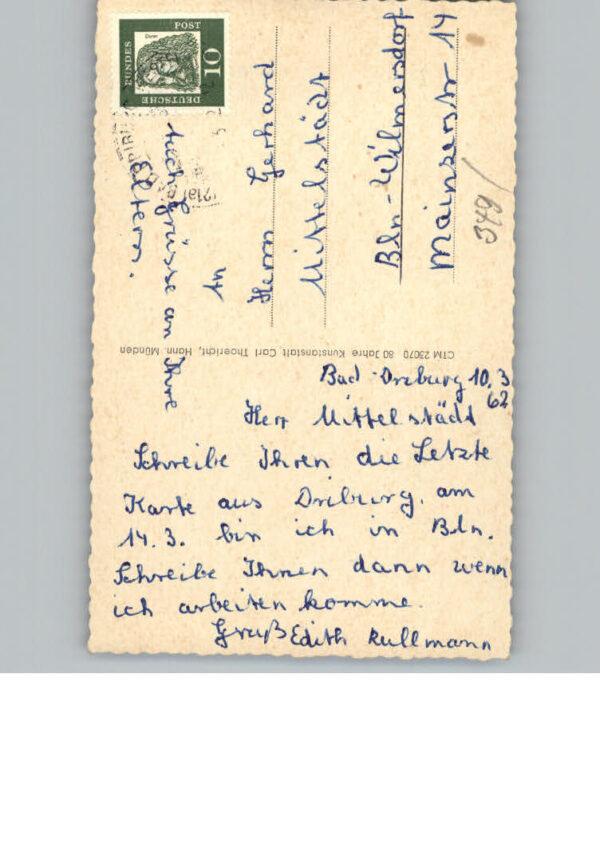 Bad Driburg 10.3
62
Herr Mittelstädt
Schreibe Ihnen die Letzte
Karte aus Driburg. am
14.3. bin ich in Bln.
Schreibe Ihnen dann wenn
ich arbeiten komme.
Gruß Edith Kullmann
Grüsse an Ihre
Eltern.
Herrn Gerhard
Mittelstädt
Bln-Wilmersdorf
Mainzerstr 14
349/
CTM 23070 80 Jahre Kunstanstalt Carl Thoericht, Hann. Münden
DEUTSCHE
BUNDES
POST
10
Dürer